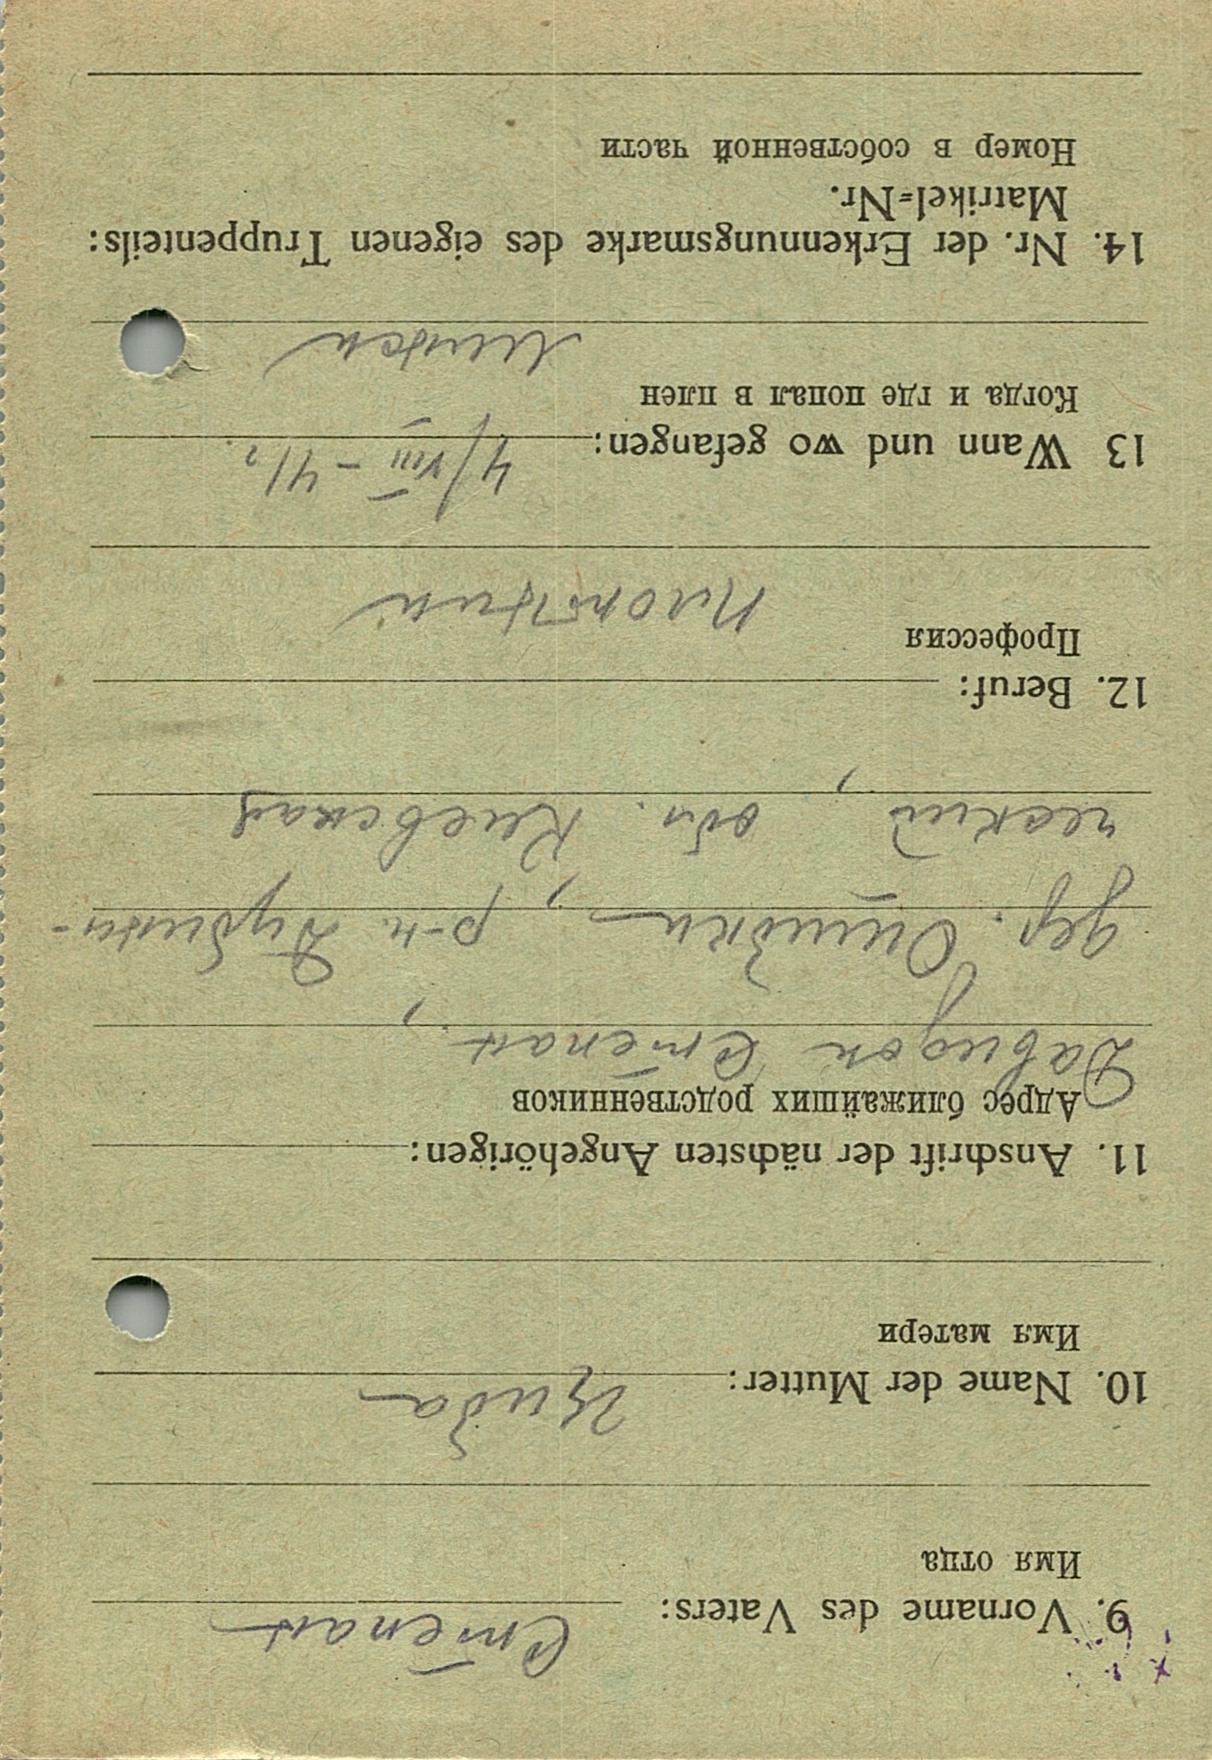 9. Vorname des Vaters: Степан
Имя отца
10. Name der Mutter:
Имя матери
11. Anschrift der nächsten Angehörigen:
Адрес ближайших родственников
Давидок Степан,
дер. р-н.
ческий, обл. Киевская
12. Beruf:
Профессия
плотник
13 Wann und wo gefangen: 4/VIII – 41 г.
Когда и где попал в плен
Минск
14. Nr. der Erkennungsmarke des eigenen Truppenteils:
Matrikel=Nr.
Номер в собственной части